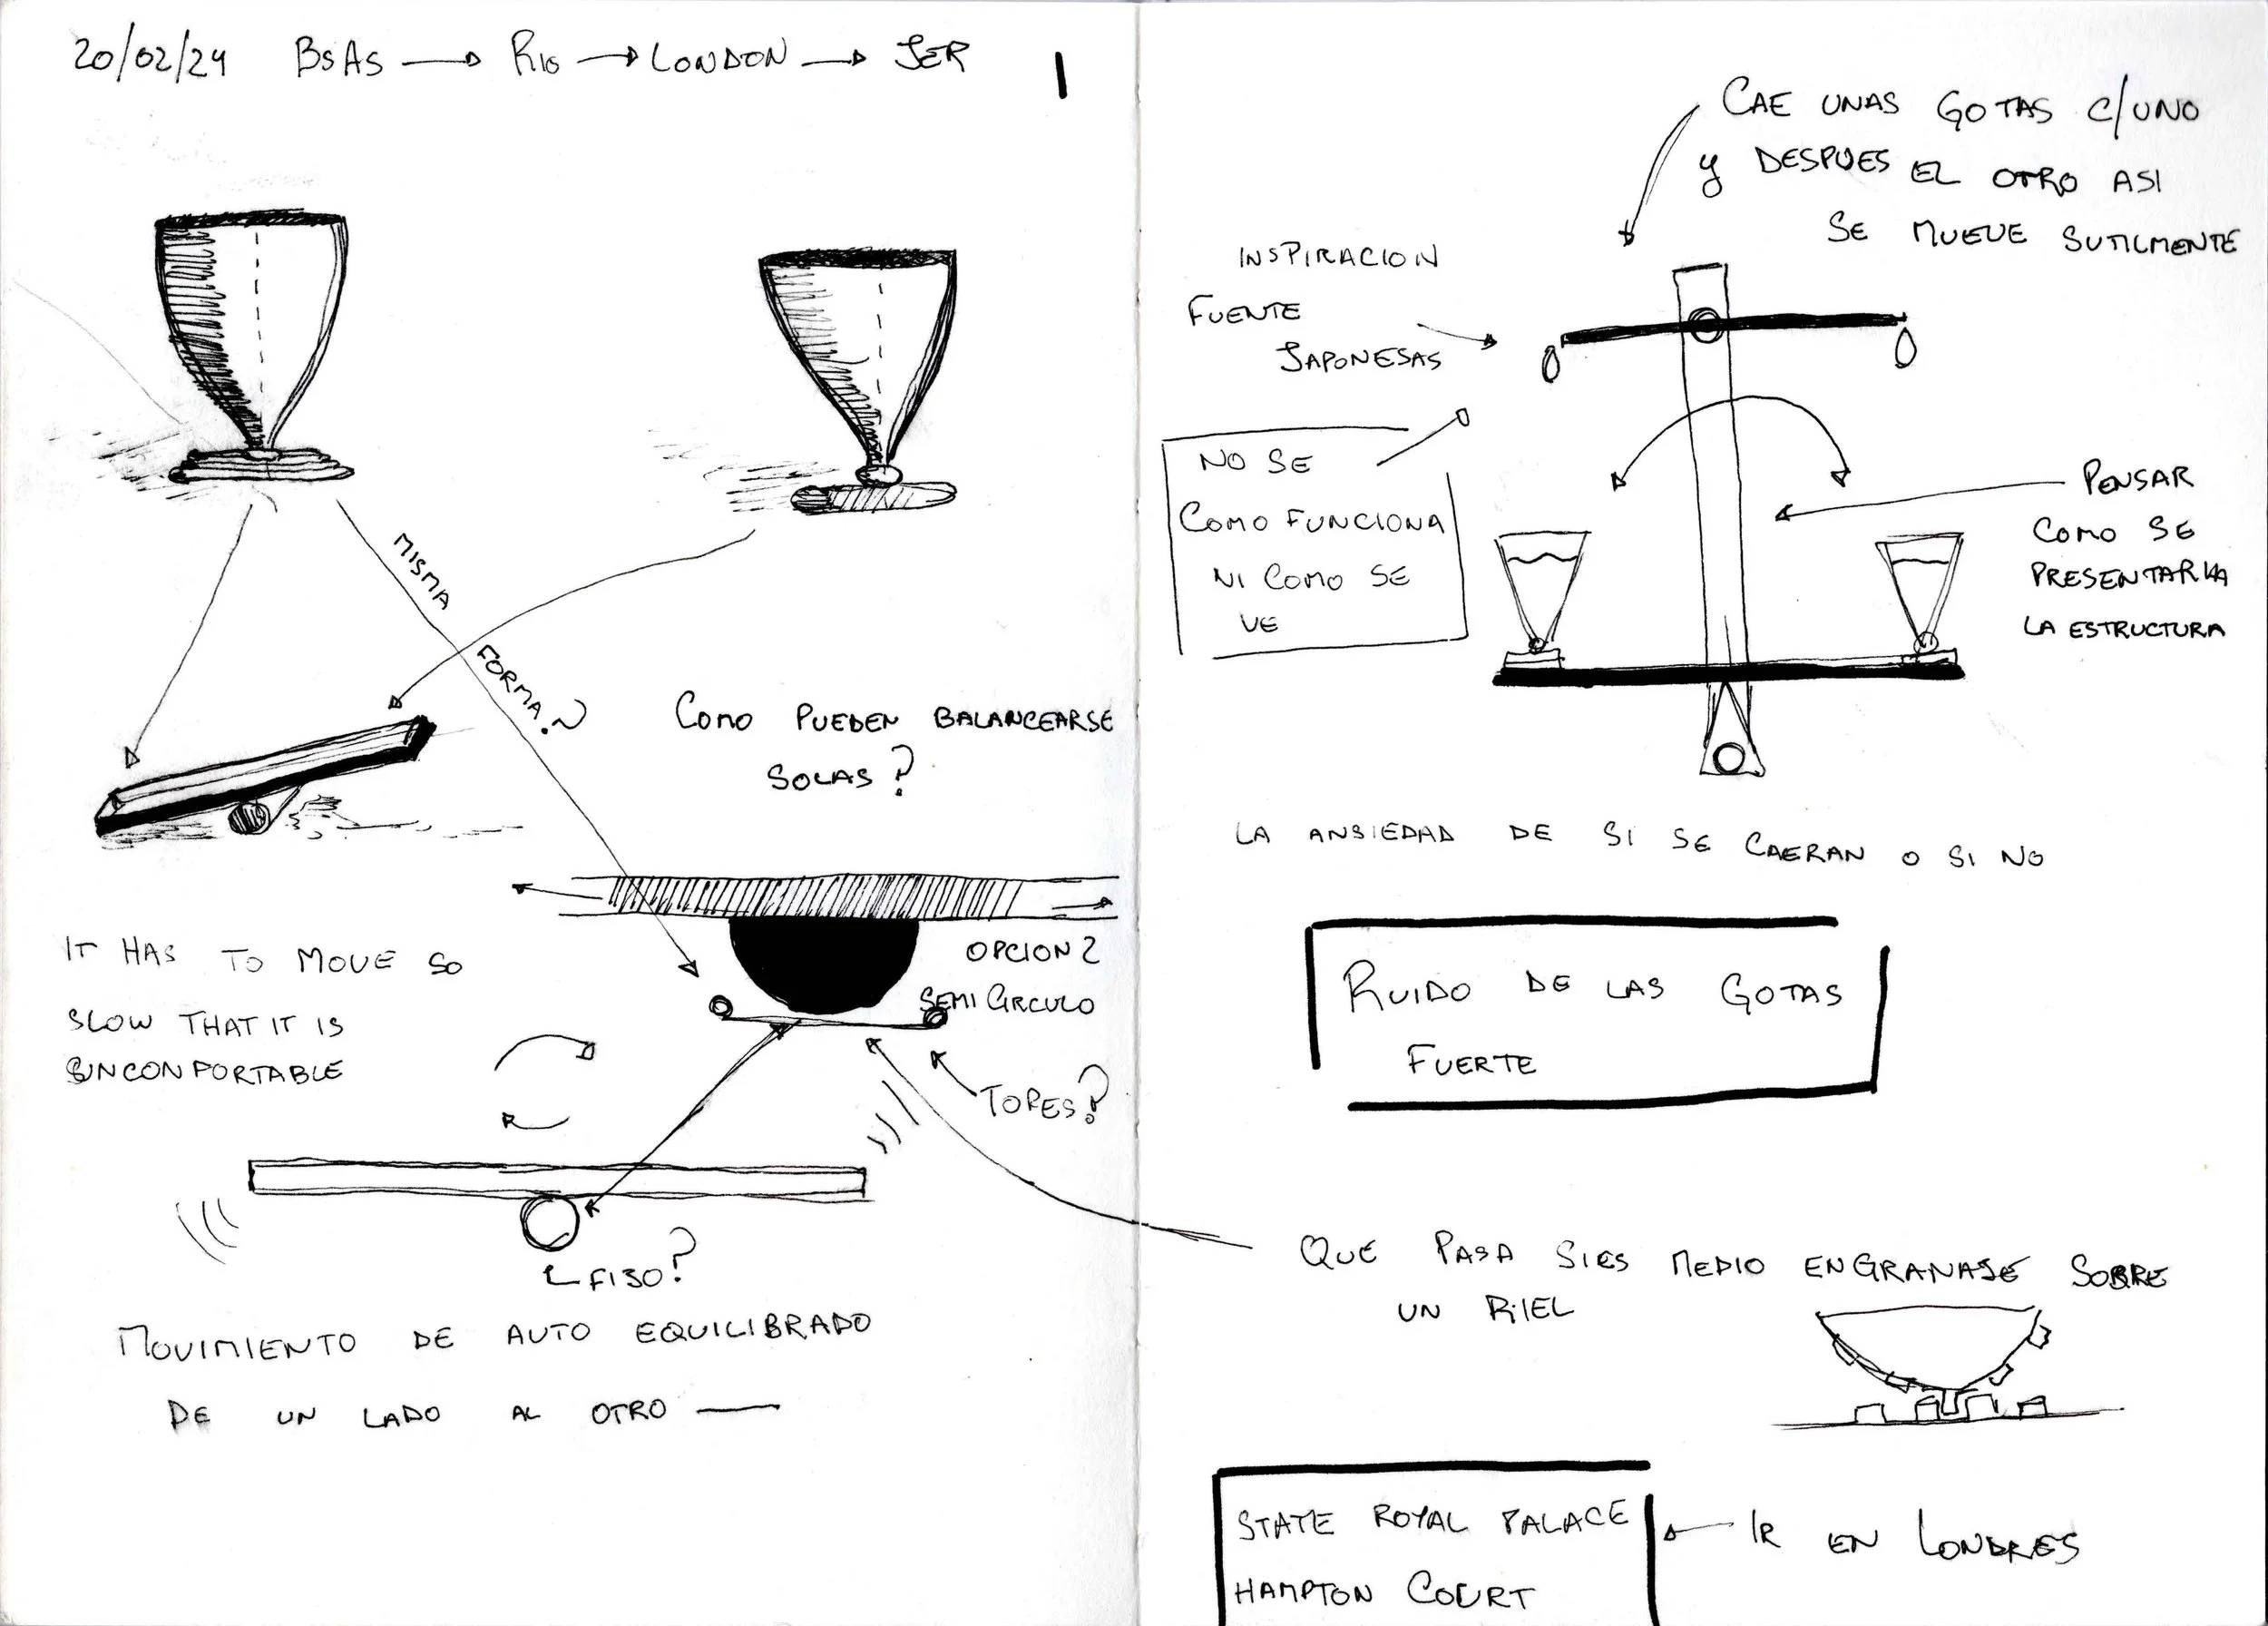 20/02/24 BsAs → Rio → LONDON → JER
1
MISMA
FORMA?
COMO PUEDEN BALANCEARSE
SOLAS?
IT HAS TO MOVE SO
SLOW THAT IT IS
UNCONFORTABLE
OPCION 2
SEMI CIRCULO
TOPES?
FIJO?
MOVIMIENTO DE AUTO EQUILIBRADO
DE UN LADO AL OTRO —
CAE UNAS GOTAS C/UNO
Y DESPUES EL OTRO ASI
SE MUEVE SUTILMENTE
INSPIRACION
FUENTE
JAPONESAS
NO SE
COMO FUNCIONA
NI COMO SE
VE
PENSAR
COMO SE
PRESENTARIA
LA ESTRUCTURA
LA ANSIEDAD DE SI SE CAERAN O SI NO
RUIDO DE LAS GOTAS
FUERTE
QUE PASA SI ES MEDIO ENGRANAJE SOBRE
UN RIEL
STATE ROYAL PALACE
HAMPTON COURT
IR EN LONDRES